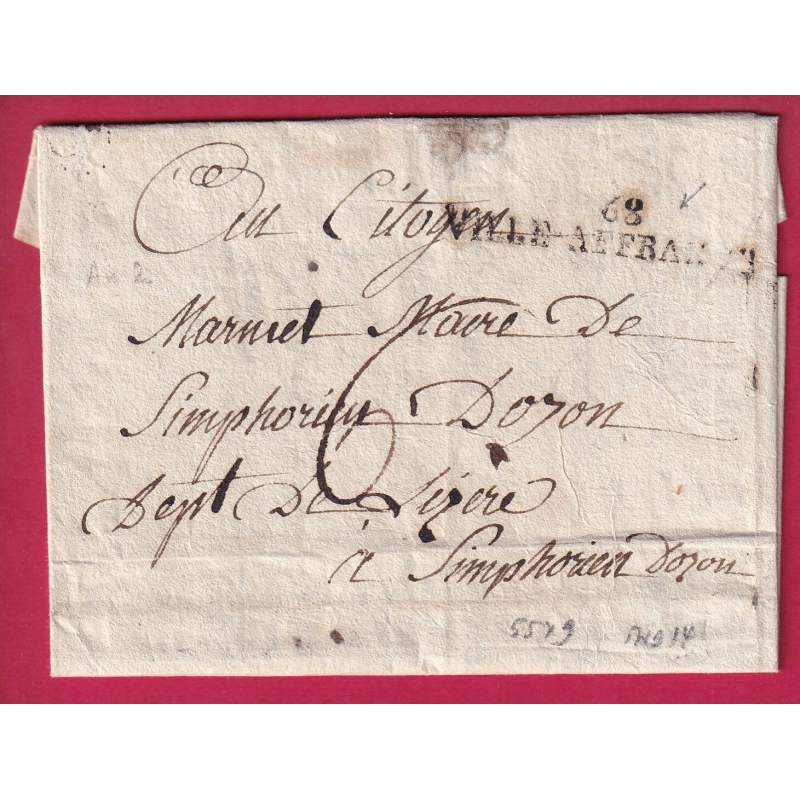 Au Citoyen
68
VILLE-AFFRANCHI
An 2
Marmet Maire De
Simphorien Dozon
6
Dept De Lizere
à Simphorien Dozon
55x9